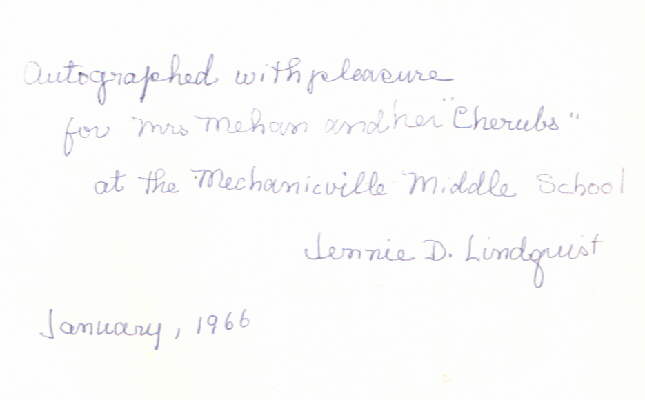 Autographed with pleasure
for Mrs Mehan and her "Cherubs"
at the Mechanicville Middle School
Jennie D. Lindquist
January, 1966